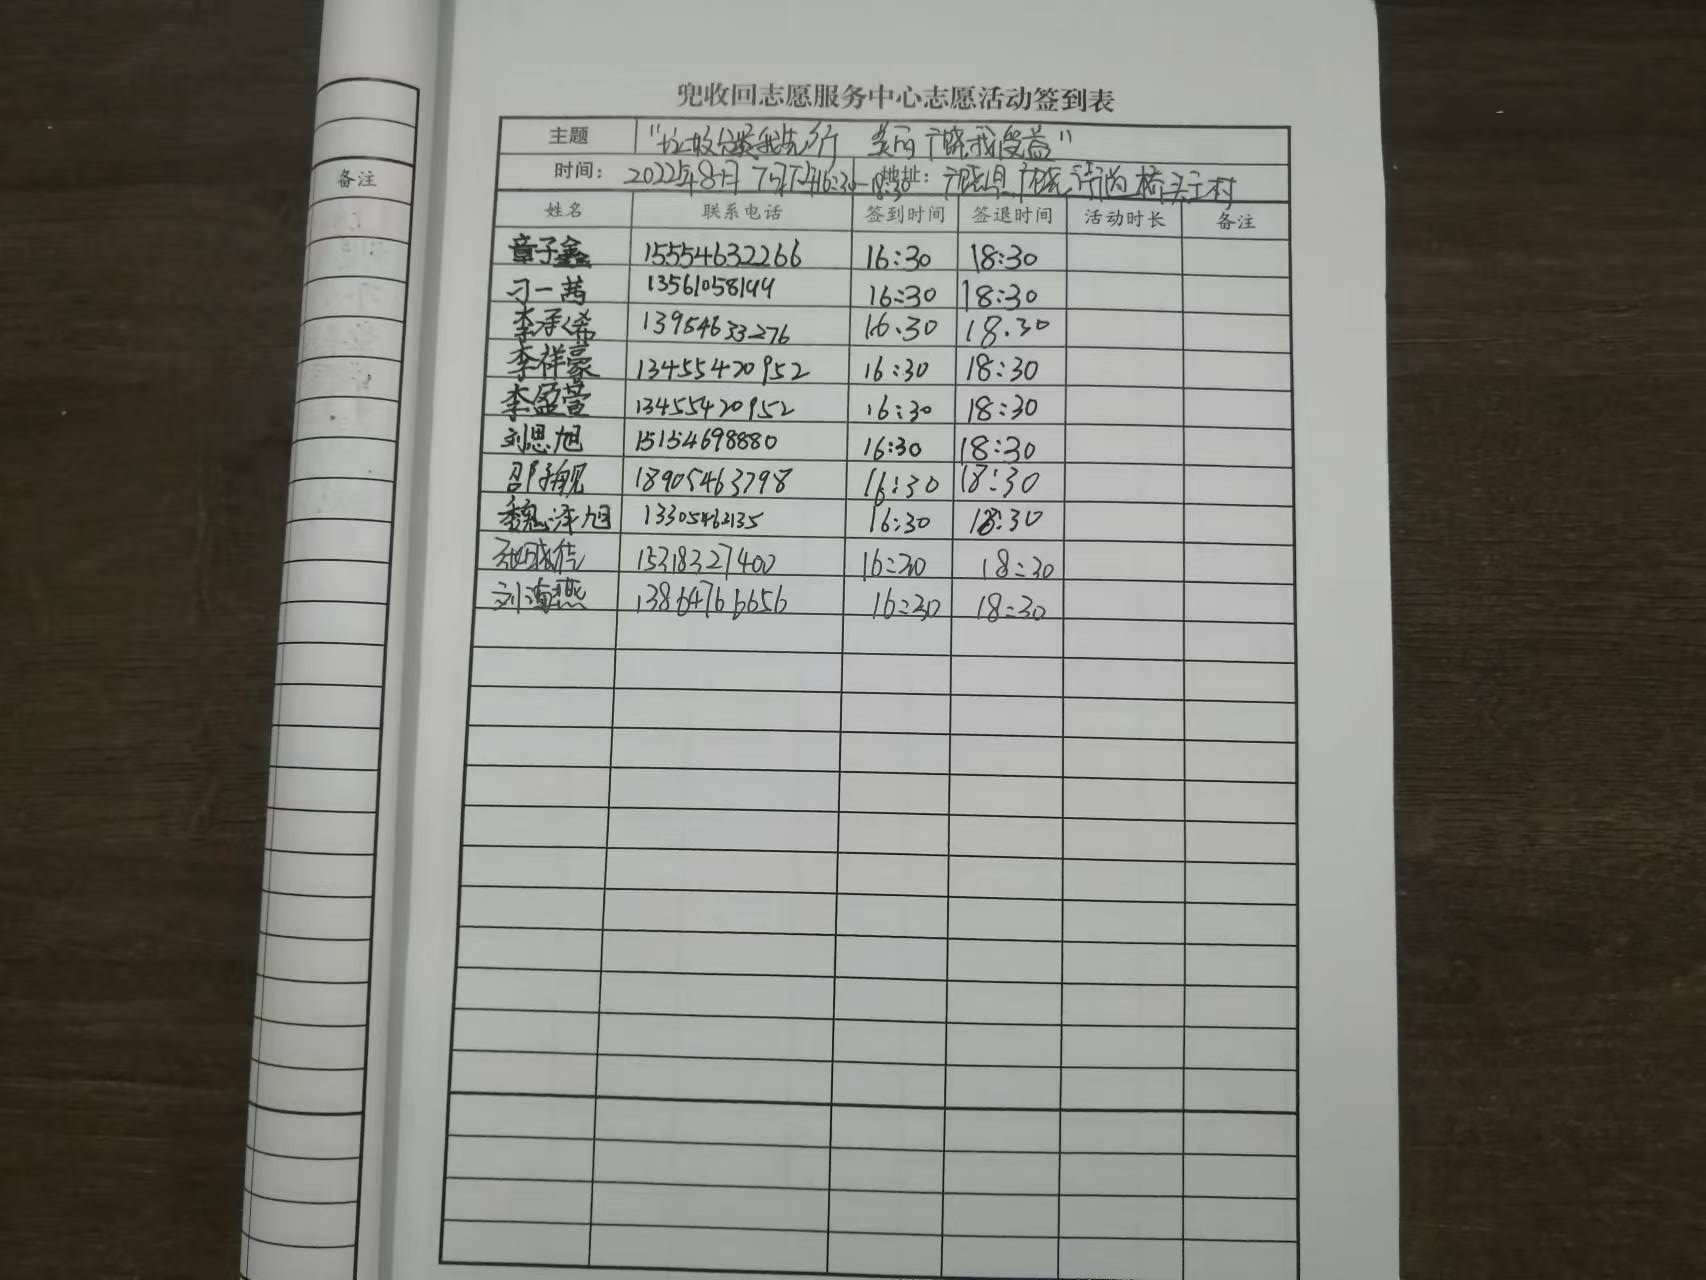 兜收回志愿服务中心志愿活动签到表
主题 "垃圾分类我先行 美丽广饶我受益"
时间: 2022年8月7日下午16:30-18:30 地址: 广饶县广饶街道桥头王村
备注
姓名 联系电话 签到时间 签退时间 活动时长 备注
章子鑫 15554632266 16:30 18:30
刁一茜 13561058199 16:30 18:30
李承希 13954633276 16.30 18.30
李祥豪 13455420952 16:30 18:30
李盈萱 13455420952 16:30 18:30
刘思旭 15154698880 16:30 18:30
邵子舰 18905463798 16:30 18:30
魏泽旭 13305462135 16:30 18:30
15318327400 16:30 18:30
刘海燕 13864766656 16:30 18:30